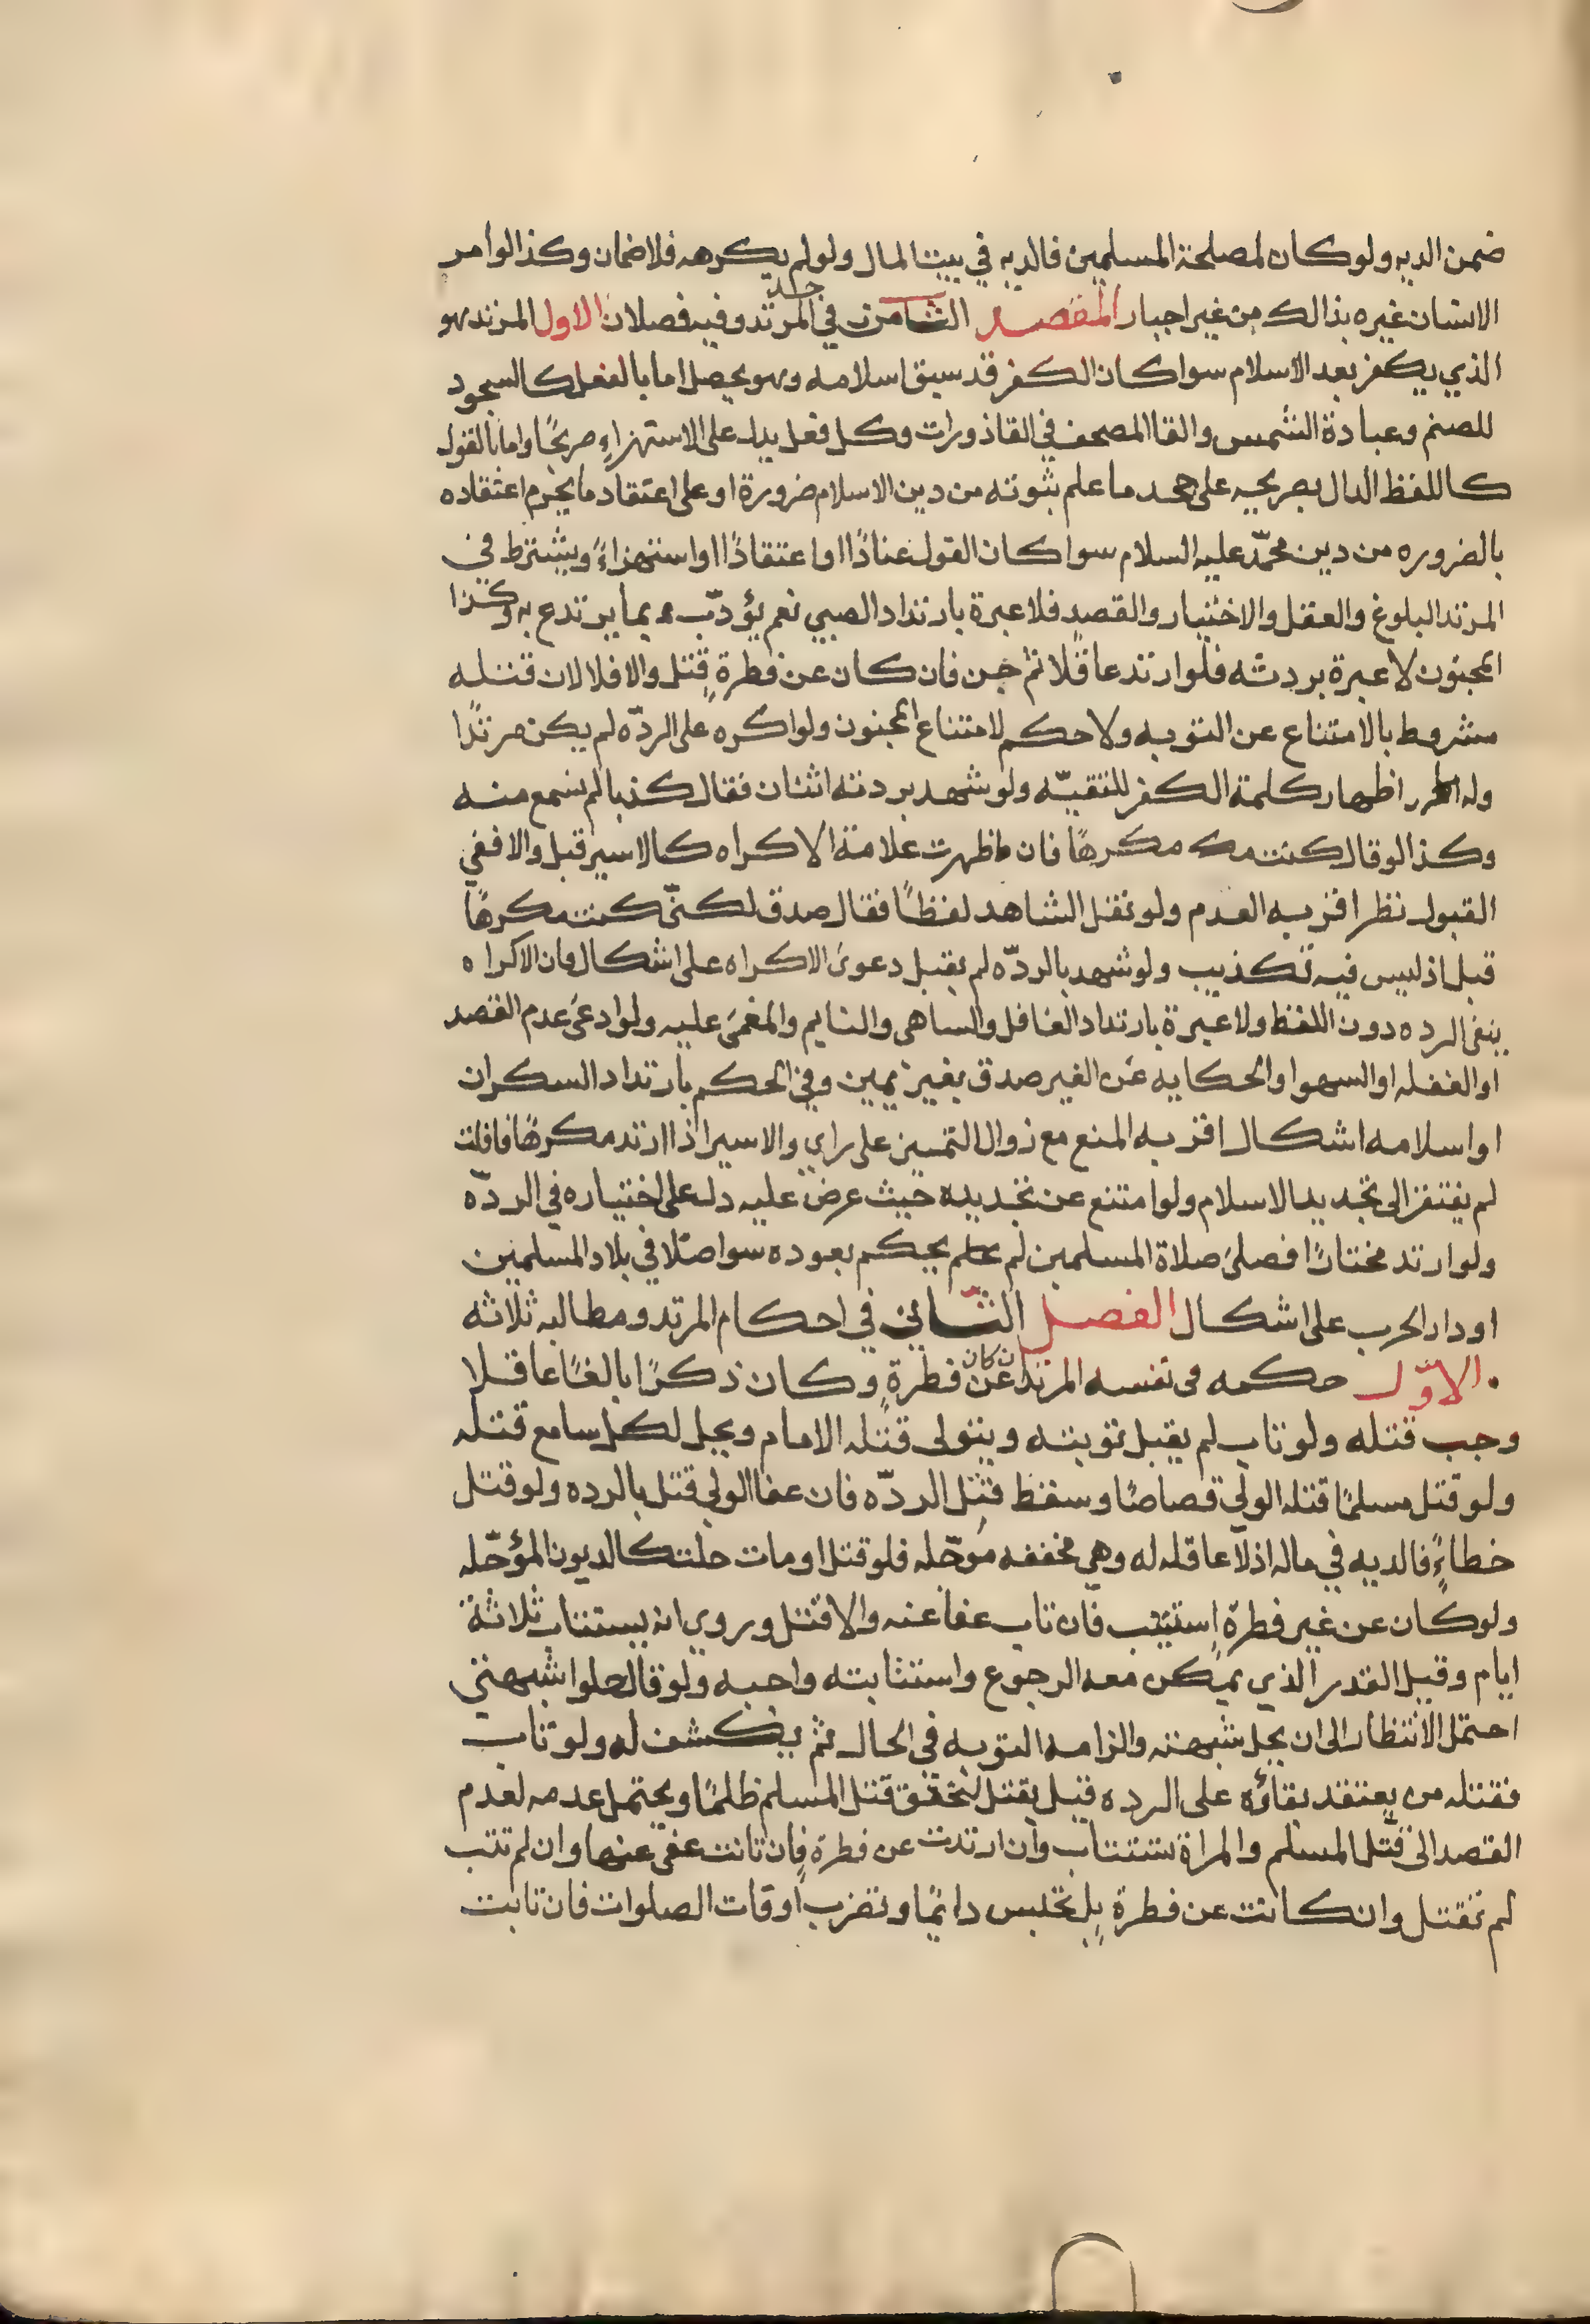 ضمن الديه ولو كان لمصلحة المسلمين فالديه في بيت المال ولو لم يكرهه فلا ضمان وكذا لو امر
الانسان غيره بذالك من غير اجبار المقصد الثامن في حد المرتد وفيه فصلان الاول المرتد هو
الذي يكفر بعد الاسلام سوا كان الكفر قد سبق اسلامه وهو يحصل اما بالفعل كالسجود
للصنم وعبادة الشمس والقا المصحف في القاذورات وكل فعل يدل على الاستهزاءِ صريحًا واما بالقول
كاللفظ الدال بصريحه على جحد ما علم ثبوته من دين الاسلام ضرورة او على اعتقاد ما يحرم اعتقاده
بالضروره من دين محمّد عليه السلام سوا كان القول عنادًا او اعتقادًا او استهزاءً ويشترط في
المرتد البلوغ والعقل والاختيار والقصد فلا عبرة بارتداد الصبي نعم يؤدّب بما يرتدع به وكذا
المجنون لا عبرة بردته فلو ارتد عاقلًا ثم جن فان كان عن فطرةٍ قتل والا فلا لان قتله
مشروط بالامتناع عن التوبه ولا حكم لامتناع المجنون ولو اكره على الردّه لم يكن مرتدًا
وله اظهار كلمة الكفر للتقيّه ولو شهد بردته اثنان فقال كذبا لم نسمع منه
وكذا لو قال كنت مكرهًا فان ظهرت علامة الاكراه كالاسير قبل والا ففي
القبول نظر اقربه العدم ولو نقل الشاهد لفظًا فقال صدق لكنّي كنت مكرهًا
قبل اذ ليس فيه تكذيب ولو شهد بالردّه لم يقبل دعوى الاكراه على اشكال فان الاكراه
ينفى الرده دون اللفظ ولا عبرة بارتداد الغافل والساهى والنايم والمغمى عليه ولو ادعى عدم القصد
او الغفله او السهو او الحكايه عن الغير صدق بغير يمين وفي الحكم بارتداد السكران
او اسلامه اشكال اقربه المنع مع زوال التميز على راي والاسير اذا ارتد مكرهًا فافلت
لم يفتقر الى تجديد الاسلام ولو امتنع عن تجديده حيث عرض عليه دل على اختياره في الردّه
ولو ارتد مختارًا فصلى صلاة المسلمين لم يحكم بعوده سوا صلا في بلاد المسلمين
او دار الحرب على اشكال الفصل الثّاني في احكام المرتد ومطالبه ثلاثه
الاوّل حكمه فى نفسه المرتد ان كان عن فطرةٍ وكان ذكرًا بالغًا عاقلا
وجب قتله ولو تاب لم يقبل توبته ويتولى قتله الامام ويحل لكل سامع قتله
ولو قتل مسلمًا قتله الولي قصاصًا وسقط قتل الردّه فان عفا الولي قتل بالرده ولو قتل
خطاءً فالديه في ماله اذ لا عاقله له وهي مخففه مؤجّله فلو قتل او مات حلت كالديون المؤجّله
ولو كان عن غير فطرة استتيب فان تاب عفا عنه والا قتل وروي انه يستتاب ثلاثة
ايام وقيل القدر الذي يمكن معه الرجوع واستتابته واجبه ولو قال حلوا شبهتي
احتمل الانتظار الى ان يحل شبهته والزامه التوبه فى الحال ثم يكشف له ولو تاب
فقتله من يعتقد بقاؤه على الرده قيل يقتل لتحقق قتل المسلم ظلمًا ويحتمل عدمه لعدم
القصد الى قتل المسلم والمراة تستتاب وان ارتدت عن فطرة فان تابت عفي عنها وان لم تتب
لم تقتل وان كانت عن فطرة بل تحبس دائمًا وتضرب اوقات الصلوات فان تابت